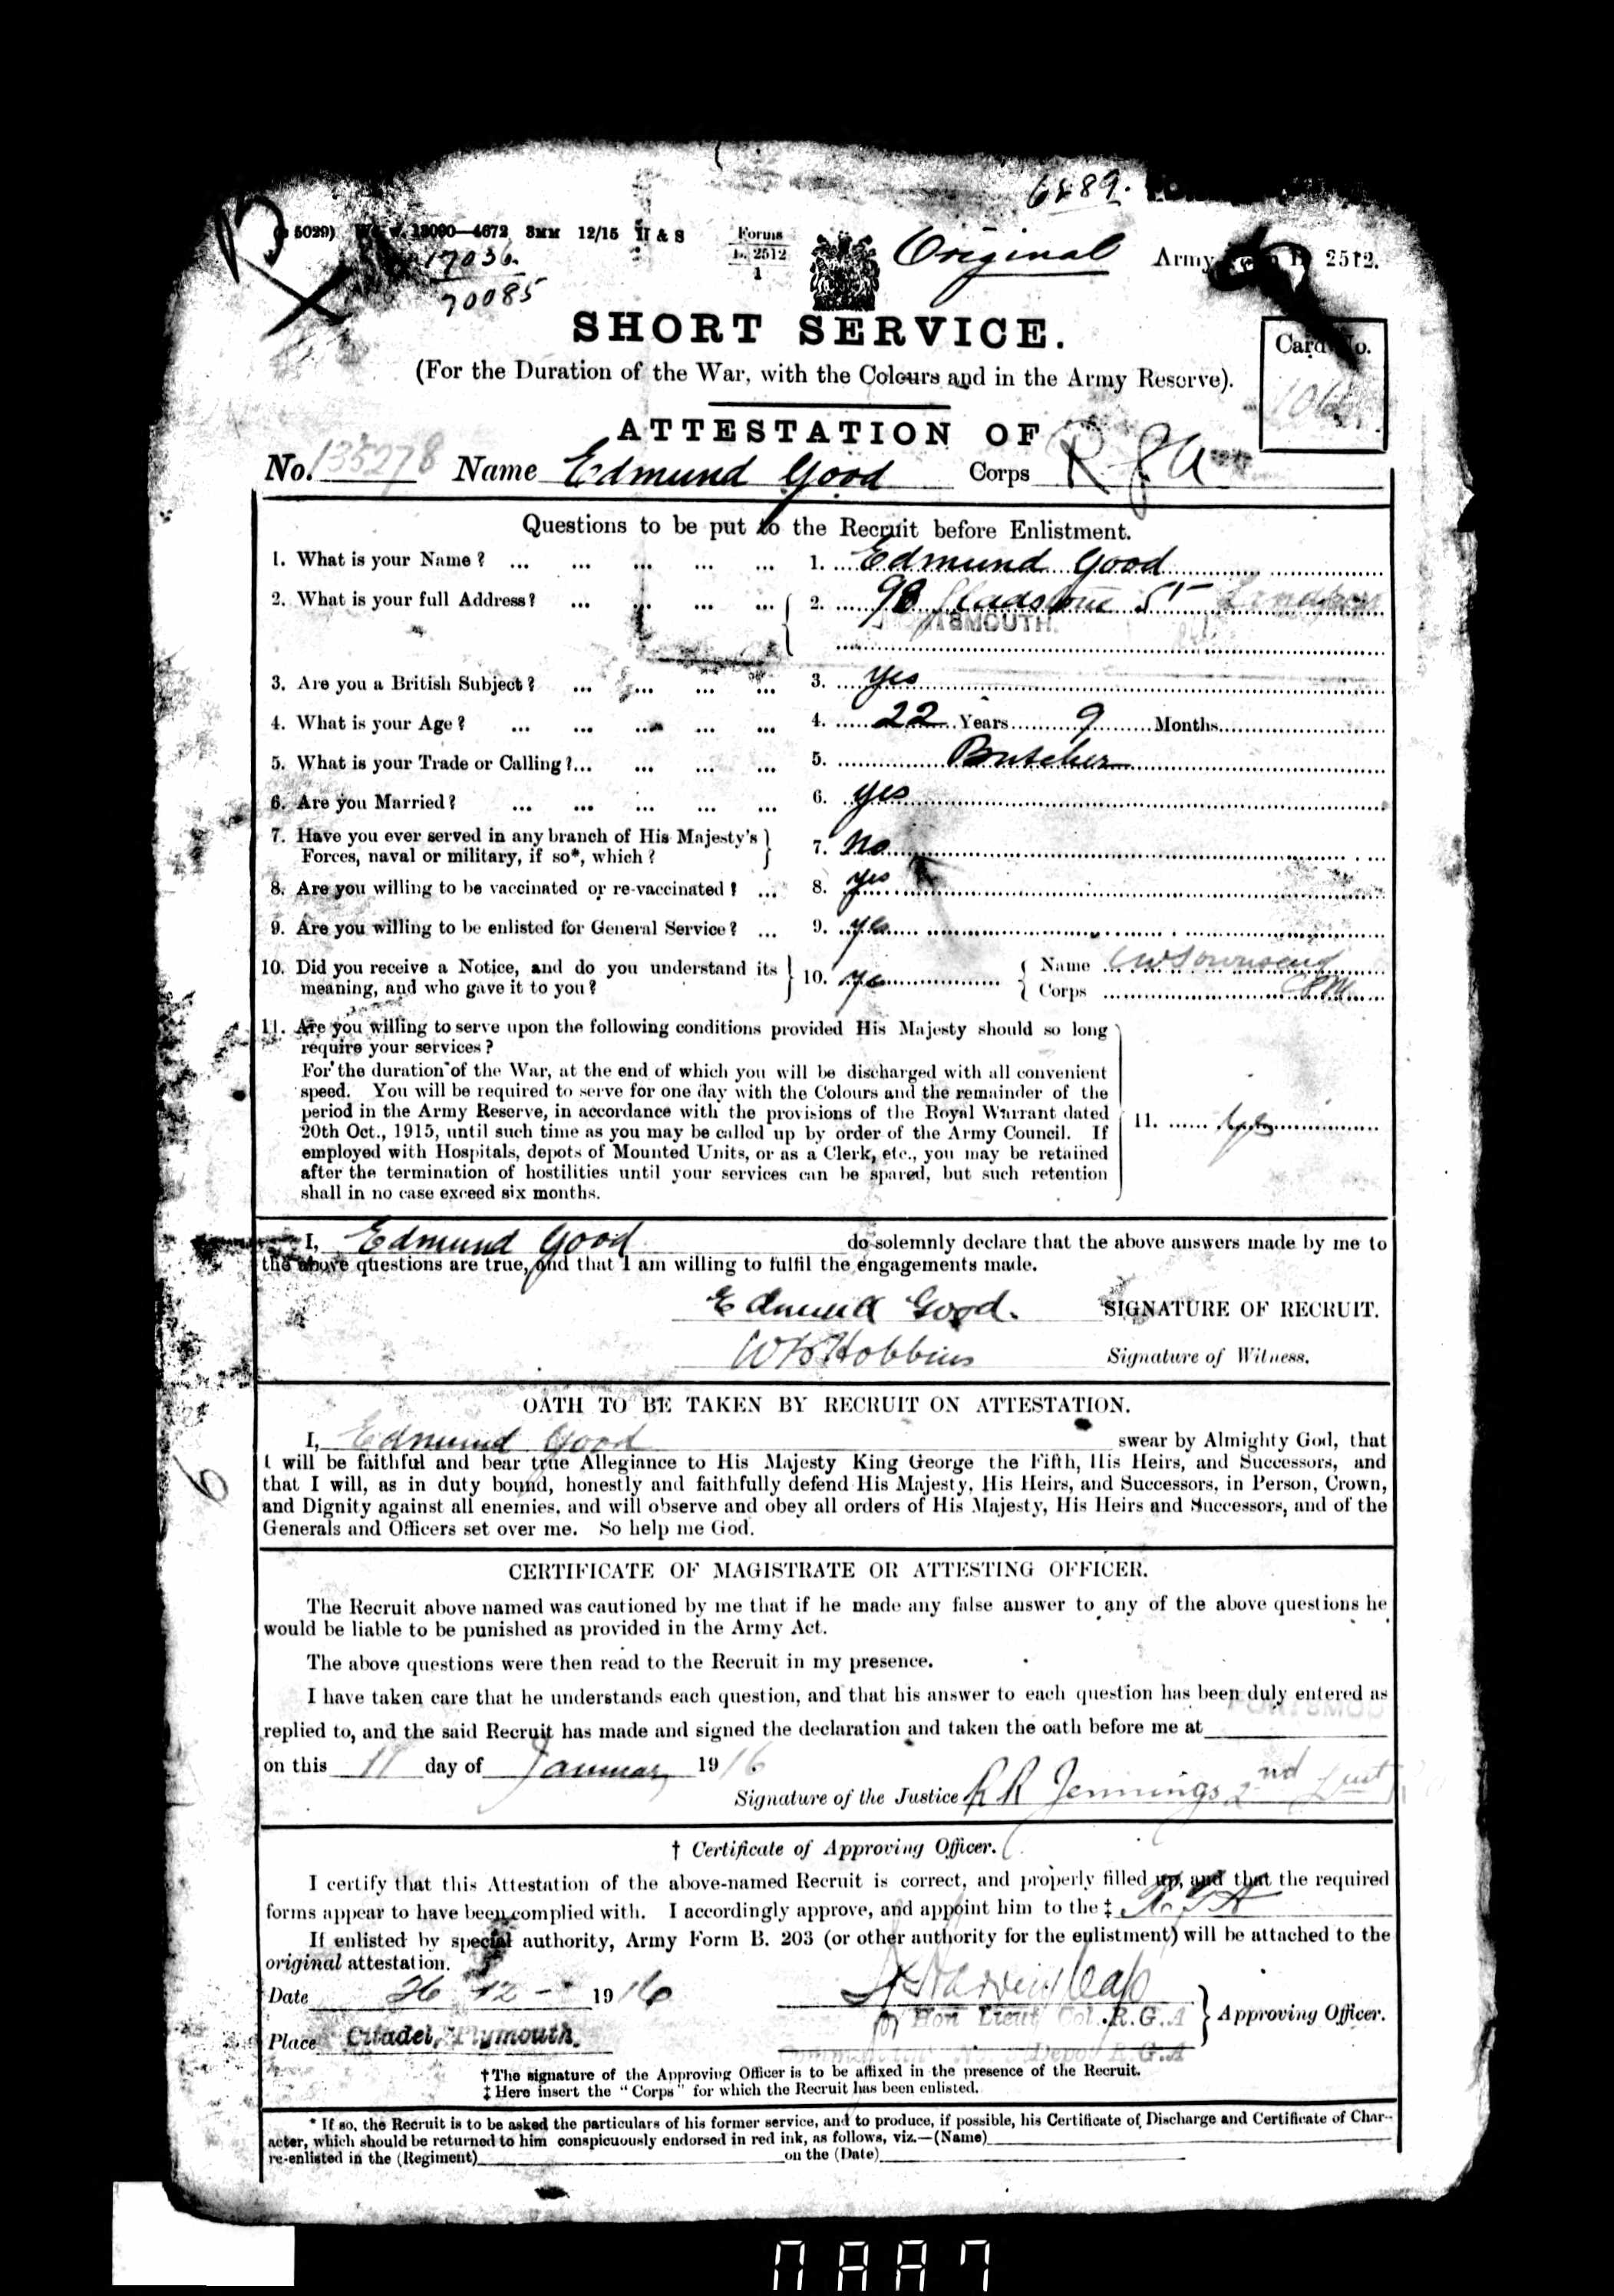 6889.
5029) 13090—4672 3MM 12/15 H & S Forms B. 2512 1 Original Army 2512.
17036.
70085
SHORT SERVICE.
Card No.
(For the Duration of the War, with the Colours and in the Army Reserve).
ATTESTATION OF
No. 135278 Name Edmund Good Corps R G A
Questions to be put to the Recruit before Enlistment.
1. What is your Name? ... ... ... ... ... 1. Edmund Good
2. What is your full Address? ... ... ... ... 2. 98 Gladstone St
3. Are you a British Subject? ... ... ... ... 3. Yes
4. What is your Age? ... ... ... ... ... 4. 22 Years 9 Months
5. What is your Trade or Calling?... ... ... ... 5. Butcher
6. Are you Married? ... ... ... ... ... 6. Yes
7. Have you ever served in any branch of His Majesty's Forces, naval or military, if so*, which? 7. No
8. Are you willing to be vaccinated or re-vaccinated? ... 8. Yes
9. Are you willing to be enlisted for General Service? ... 9. Yes
10. Did you receive a Notice, and do you understand its meaning, and who gave it to you? 10. Yes Name C W Townsend
Corps
11. Are you willing to serve upon the following conditions provided His Majesty should so long
require your services?
For the duration of the War, at the end of which you will be discharged with all convenient
speed. You will be required to serve for one day with the Colours and the remainder of the
period in the Army Reserve, in accordance with the provisions of the Royal Warrant dated
20th Oct., 1915, until such time as you may be called up by order of the Army Council. If
employed with Hospitals, depots of Mounted Units, or as a Clerk, etc., you may be retained
after the termination of hostilities until your services can be spared, but such retention
shall in no case exceed six months.
11. Yes
I, Edmund Good do solemnly declare that the above answers made by me to
the above questions are true, and that I am willing to fulfil the engagements made.
Edmund Good. SIGNATURE OF RECRUIT.
W B Hobbins Signature of Witness.
OATH TO BE TAKEN BY RECRUIT ON ATTESTATION.
I, Edmund Good swear by Almighty God, that
I will be faithful and bear true Allegiance to His Majesty King George the Fifth, His Heirs, and Successors, and
that I will, as in duty bound, honestly and faithfully defend His Majesty, His Heirs, and Successors, in Person, Crown,
and Dignity against all enemies, and will observe and obey all orders of His Majesty, His Heirs and Successors, and of the
Generals and Officers set over me. So help me God.
6
CERTIFICATE OF MAGISTRATE OR ATTESTING OFFICER.
The Recruit above named was cautioned by me that if he made any false answer to any of the above questions he
would be liable to be punished as provided in the Army Act.
The above questions were then read to the Recruit in my presence.
I have taken care that he understands each question, and that his answer to each question has been duly entered as
replied to, and the said Recruit has made and signed the declaration and taken the oath before me at
on this 11 day of January 1916
Signature of the Justice R R Jennings 2nd Lieut
† Certificate of Approving Officer.
I certify that this Attestation of the above-named Recruit is correct, and properly filled up, and that the required
forms appear to have been complied with. I accordingly approve, and appoint him to the ‡ R G A
If enlisted by special authority, Army Form B. 203 (or other authority for the enlistment) will be attached to the
original attestation.
Date 26 12 - 1916
for Hon Lieut Col. R.G.A Approving Officer.
Place Citadel, Plymouth.
Depot R G.A
†The signature of the Approving Officer is to be affixed in the presence of the Recruit.
‡Here insert the "Corps" for which the Recruit has been enlisted.
* If so, the Recruit is to be asked the particulars of his former service, and to produce, if possible, his Certificate of Discharge and Certificate of Char-
acter, which should be returned to him conspicuously endorsed in red ink, as follows, viz.—(Name)
re-enlisted in the (Regiment) on the (Date)